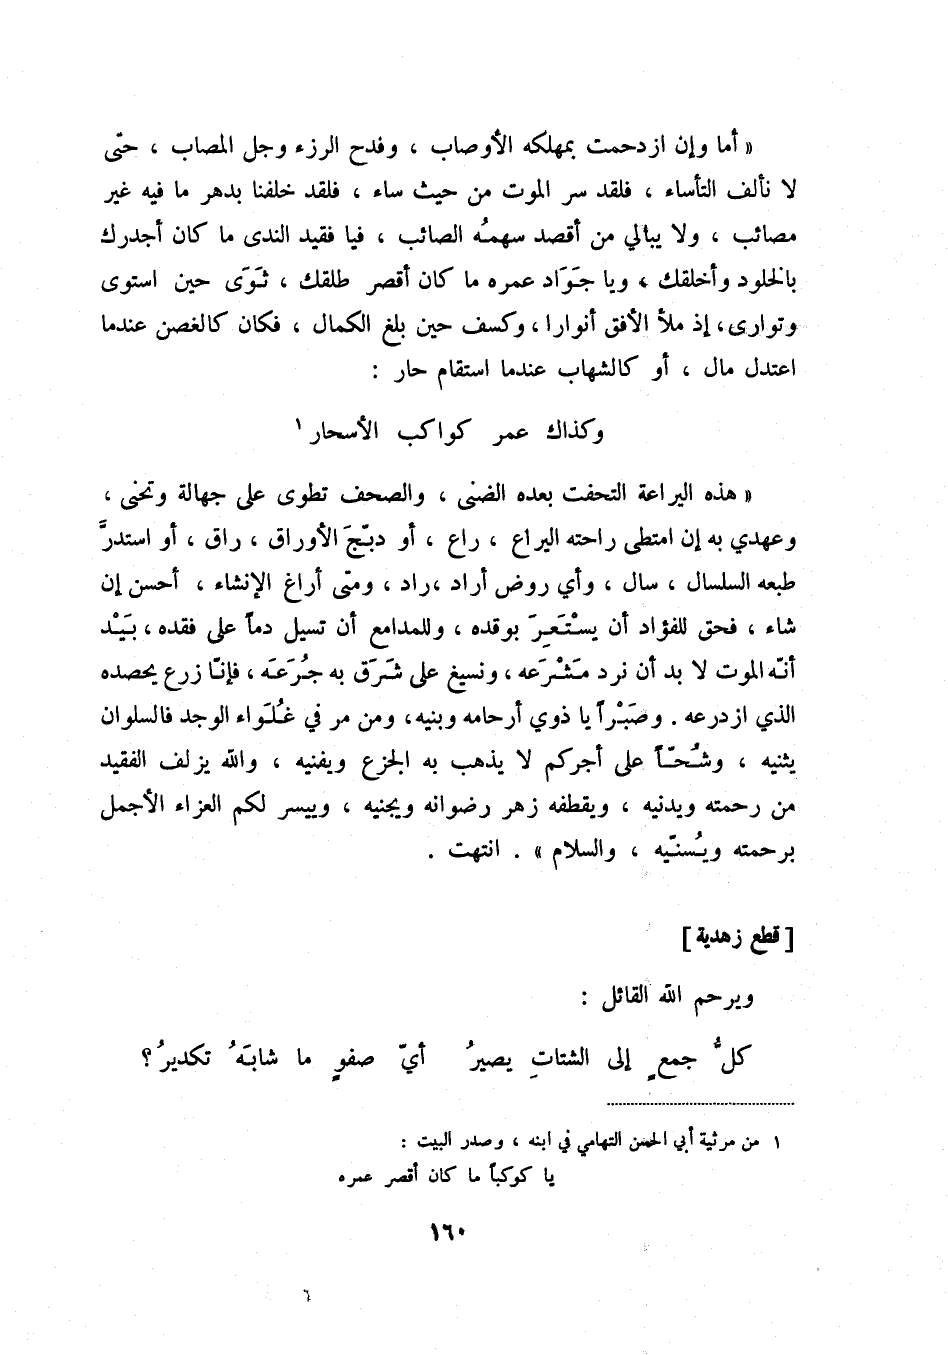 « أما وإن ازدحمت بمهلكه الأوصاب ، وفدح الرزء وجل المصاب ، حتّى
لا نألف التأساء ، فلقد سر الموت من حيث ساء ، فلقد خلفنا بدهر ما فيه غير
مصائب ، ولا يبالي من أقصد سهمُه الصائب ، فيا فقيد الندى ما كان أجدرك
بالخلود وأخلقك ، ويا جَوَاد عمره ما كان أقصر طلقك ، ثَوَى حين استوى
وتوارى، إذ ملأ الأفق أنوارا ، وكسف حين بلغ الكمال ، فكان كالغصن عندما
اعتدل مال ، أو كالشهاب عندما استقام حار :
وكذاك عمر كواكب الأسحار ١
« هذه اليراعة التحفت بعده الضنى ، والصحف تطوى على جهالة وتحنى ،
وعهدي به إن امتطى راحته اليراع ، راع ، أو دبّجَ الأوراق ، راق ، أو استدرَّ
طبعه السلسال ، سال ، وأي روض أراد ،راد ، ومتى أراغ الإنشاء ، أحسن إن
شاء ، فحق للفؤاد أن يسْتَعِرَ بوقده ، وللمدامع أن تسيل دماً على فقده ، بَيْد
أنّه الموت لا بد أن نرد مَشْرَعه ، ونسيغ على شَرَق به جُرَعَه ، فإنّا زرع يحصده
الذي ازدرعه . وصَبْراً يا ذوي أرحامه وبنيه، ومن مر في غُلَواء الوجد فالسلوان
يثنيه ، وشُحّاً على أجركم لا يذهب به الجزع ويفنيه ، والله يزلف الفقيد
من رحمته ويدنيه ، ويقطفه زهر رضوانه ويجنيه ، وييسر لكم العزاء الأجمل
برحمته ويُسنّيه ، والسلام » . انتهت .
[ قطع زهدية ]
ويرحم الله القائل :
كلُّ جمعٍ إلى الشتاتِ يصيرُ أيّ صفوٍ ما شابَهُ تكديرُ؟
١ من مرثية أبي الحسن التهامي في ابنه ، وصدر البيت :
يا كوكباً ما كان أقصر عمره
١٦٠
٦